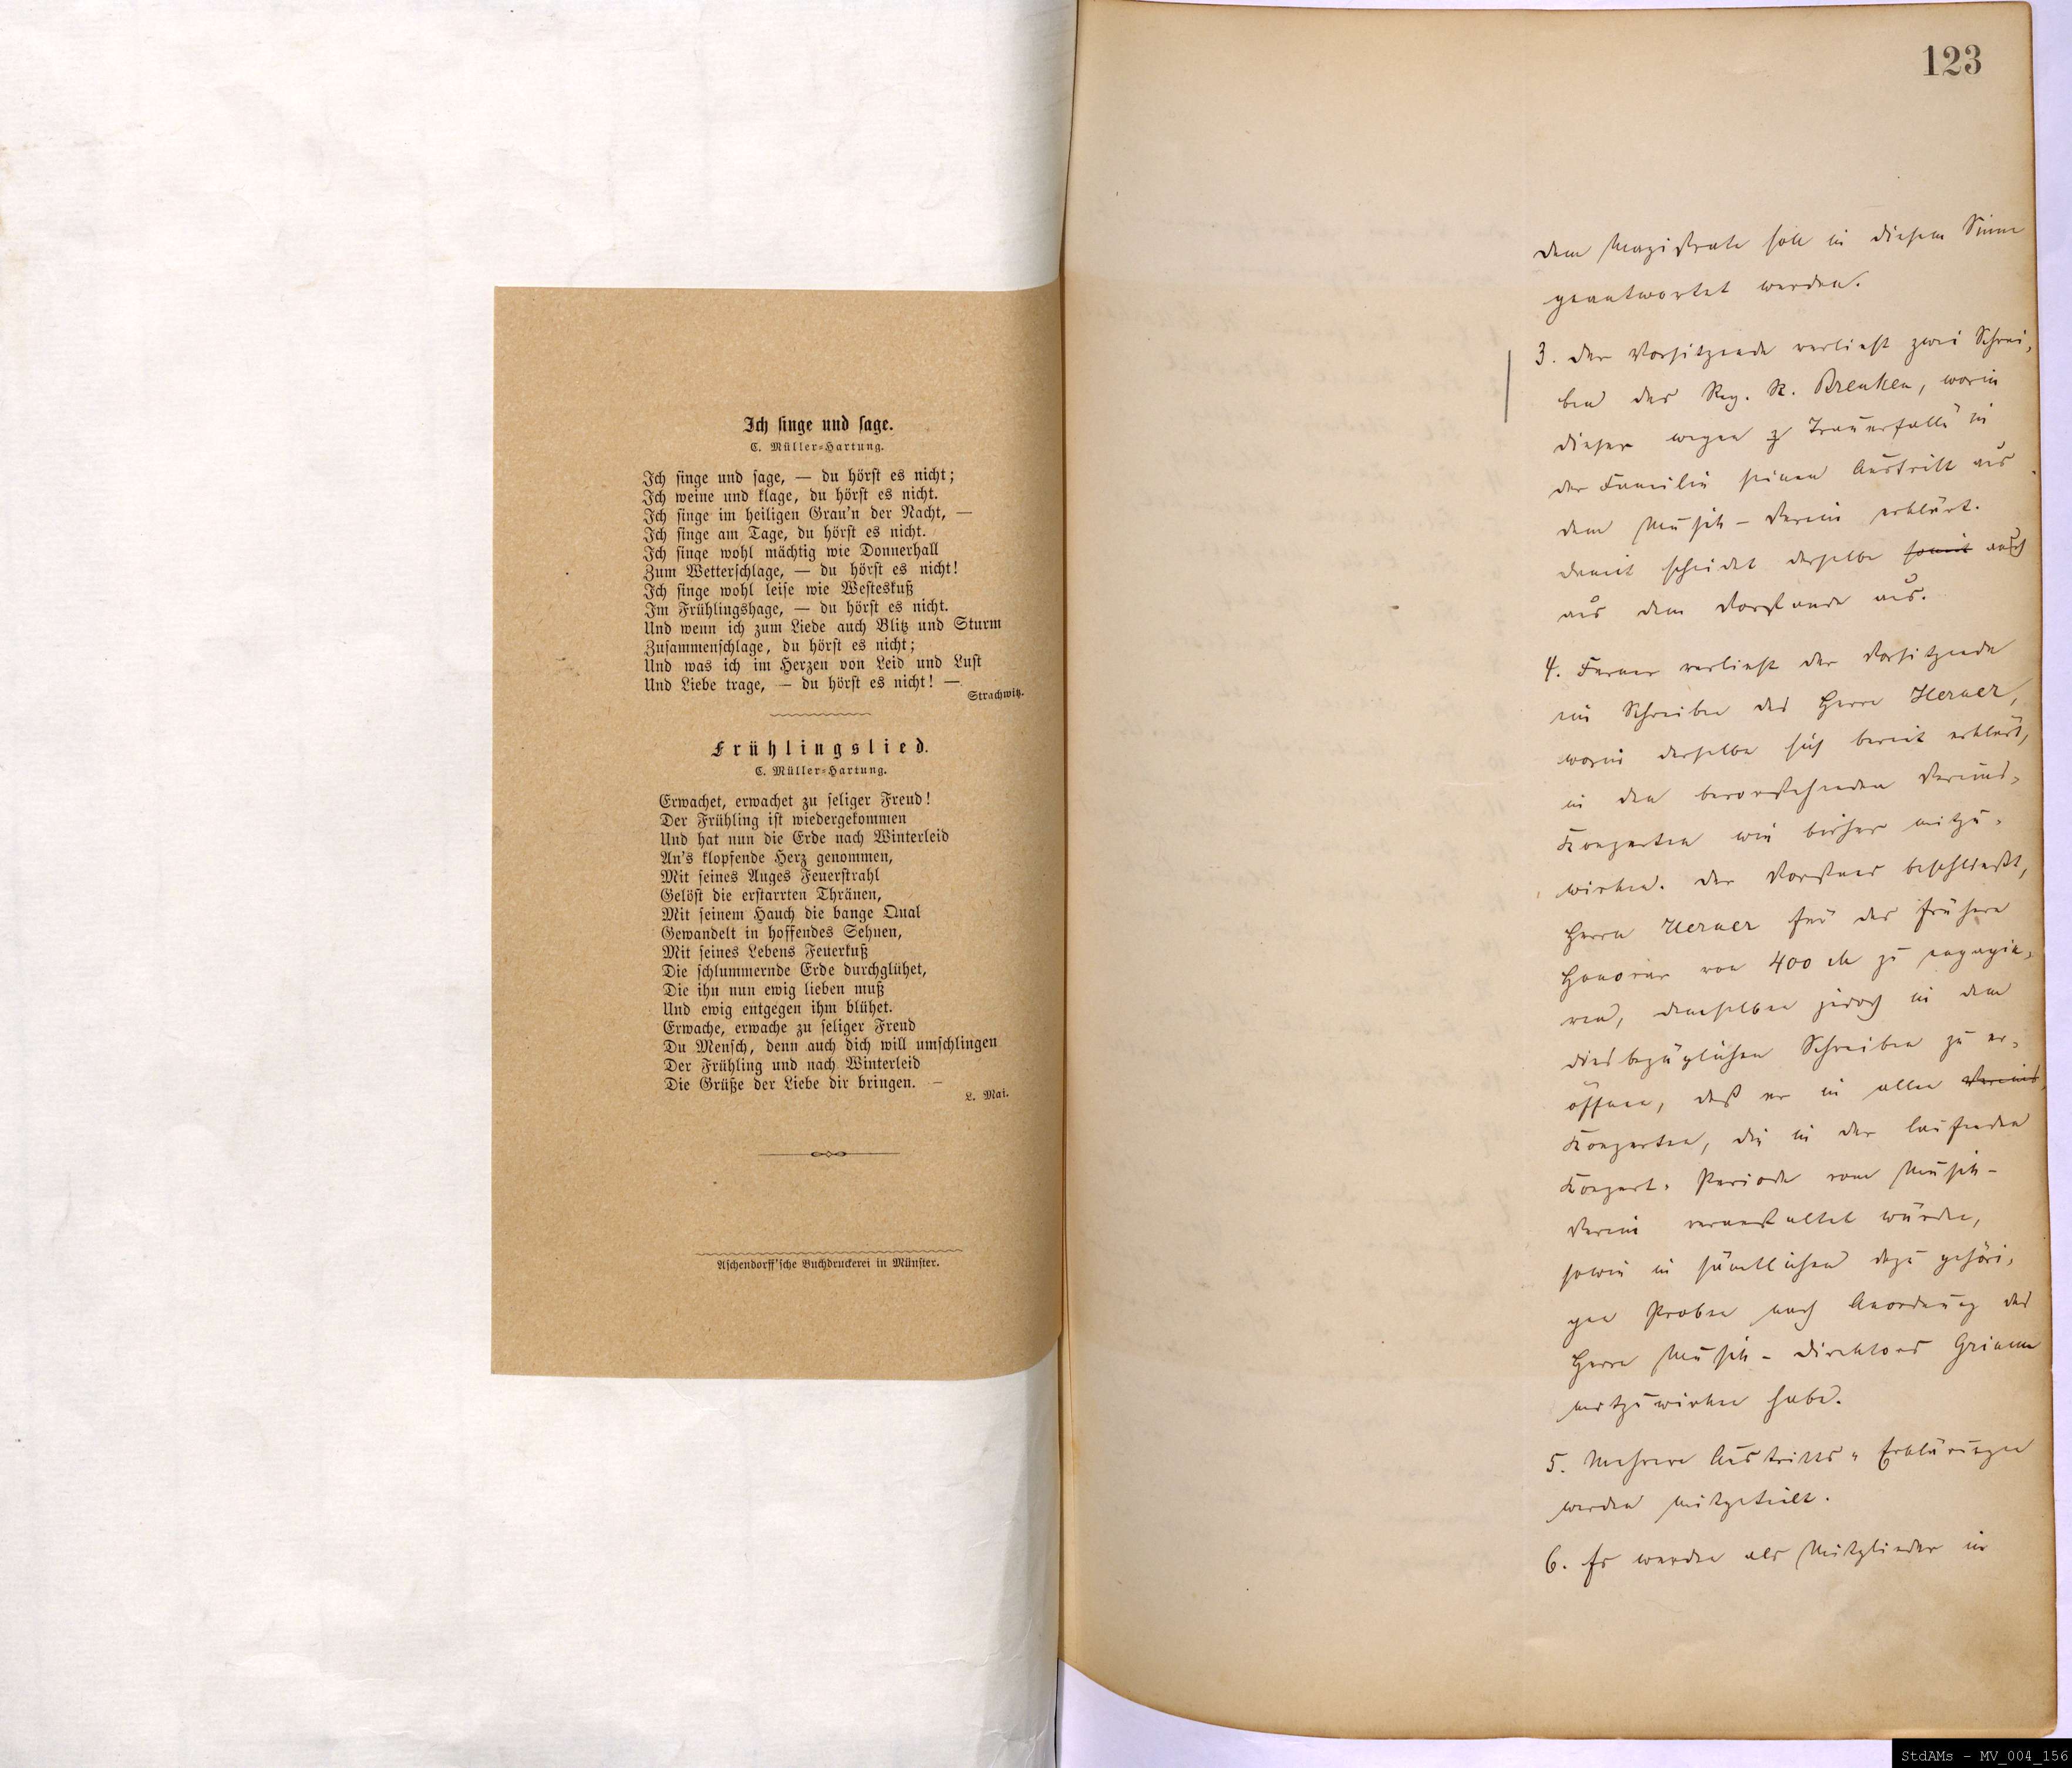 Ich singe und sage.
C. Müller=Hartung.
Ich singe und sage, — du hörst es nicht;
Ich weine und klage, du hörst es nicht.
Ich singe im heiligen Grau'n der Nacht, —
Ich singe am Tage, du hörst es nicht.
Ich singe wohl mächtig wie Donnerhall
Zum Wetterschlage, — du hörst es nicht!
Ich singe wohl leise wie Westeskuß
Im Frühlingshage, — du hörst es nicht.
Und wenn ich zum Liede auch Blitz und Sturm
Zusammenschlage, du hörst es nicht;
Und was ich im Herzen von Leid und Lust
Und Liebe trage, — du hörst es nicht! —
Strachwitz.
Frühlingslied.
C. Müller=Hartung.
Erwachet, erwachet zu seliger Freud!
Der Frühling ist wiedergekommen
Und hat nun die Erde nach Winterleid
An's klopfende Herz genommen,
Mit seines Auges Feuerstrahl
Gelöst die erstarrten Thränen,
Mit seinem Hauch die bange Qual
Gewandelt in hoffendes Sehnen,
Mit seines Lebens Feuerkuß
Die schlummernde Erde durchglühet,
Die ihn nun ewig lieben muß
Und ewig entgegen ihm blühet.
Erwache, erwache zu seliger Freud
Du Mensch, denn auch dich will umschlingen
Der Frühling und nach Winterleid
Die Grüße der Liebe dir bringen. —
L. Mai.
Aschendorff'sche Buchdruckerei in Münster.
123
dem Magistrate soll in diesem Sinne
geantwortet werden.
3. Der Vorsitzende verliest zwei Schrei,
ben des Reg. R. Brenken, worin
dieser wegen Trauerfalls in
der Familie seinen Austritt aus
dem Musik-Verein erklärt.
Damit scheidet derselbe somit auch
aus dem Vorstande aus.
4. Ferner verliest der Vorsitzende
ein Schreiben des Herrn Herner,
worin derselbe sich bereit erklärt,
in den bevorstehenden Vereins,
Konzerten wie bisher mitzu,
wirken. Der Vorstand beschließt,
Herrn Herner für das frühere
Honorar von 400 M zu engagie,
ren, demselben jedoch in dem
diesbezüglichen Schreiben zu er,
öffnen, daß er in allen Vereins,
Konzerten, die in der laufenden
Konzert, Periode vom Musik-
Verein veranstaltet würden,
sowie in sämtlichen dazu gehöri,
gen Proben nach Anordnung des
Herrn Musik-Direktors Grimm
mitzuwirken habe.
5. Mehrere Austritts, Erklärungen
werden mitgeteilt.
6. Es werden als Mitglieder in
StdAMs - MV_004_156